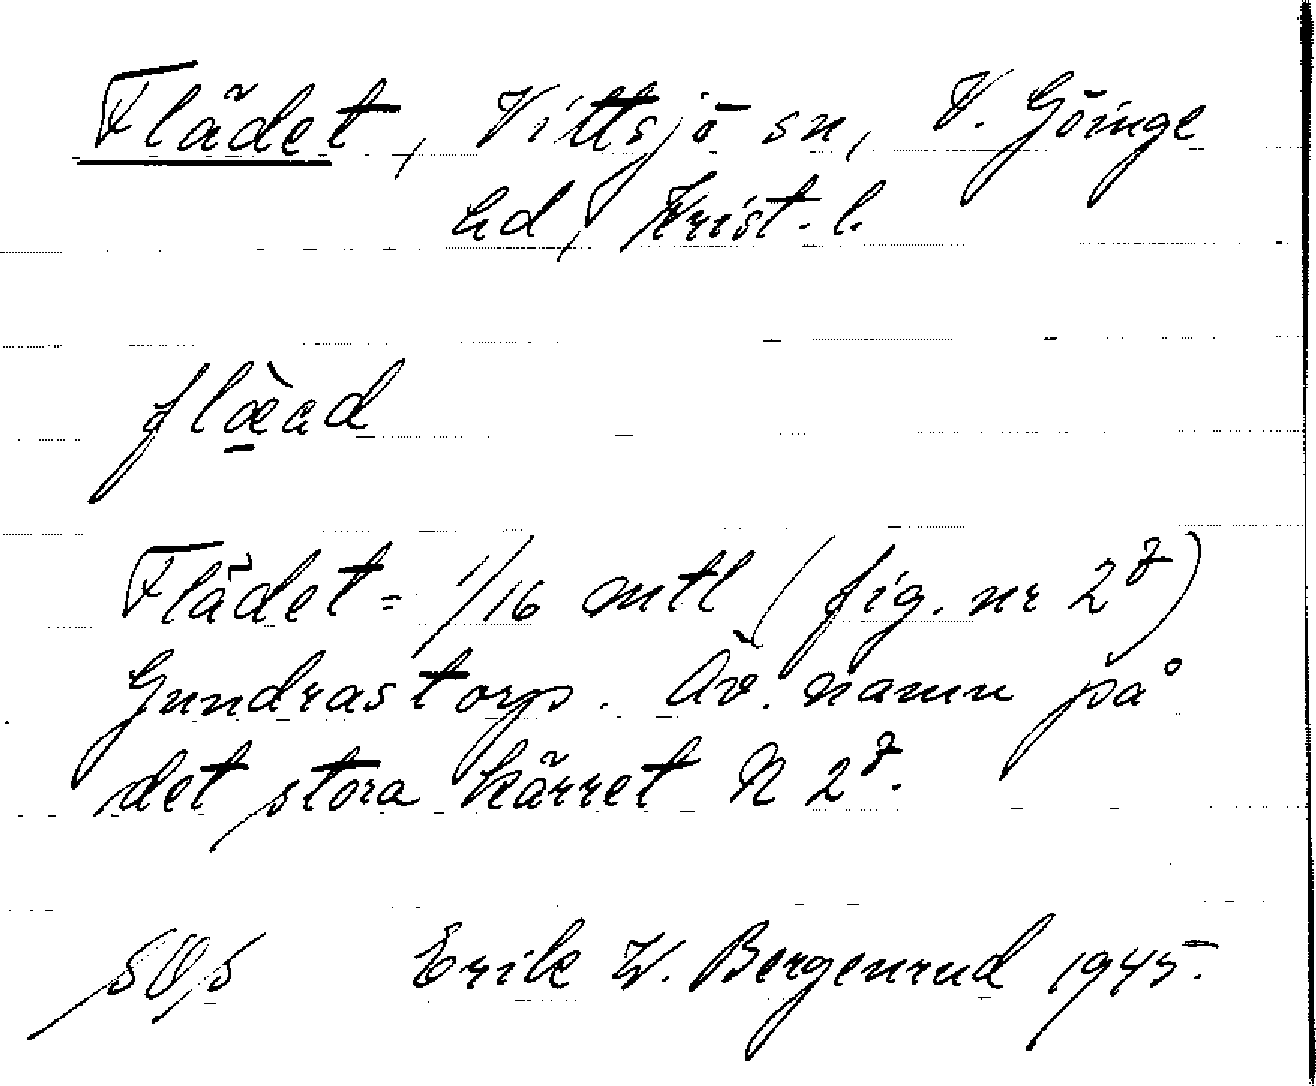 Flädet, Vittsjö sn, V. Göinge
hd, Krist. l.
flæ̀ad
Flädet = 1/16 mtl (fig. nr 2⁸)
Gundrastorp. Äv. namn på
det stora kärret N 2⁸.
Erik W. Bergenrud 1945.